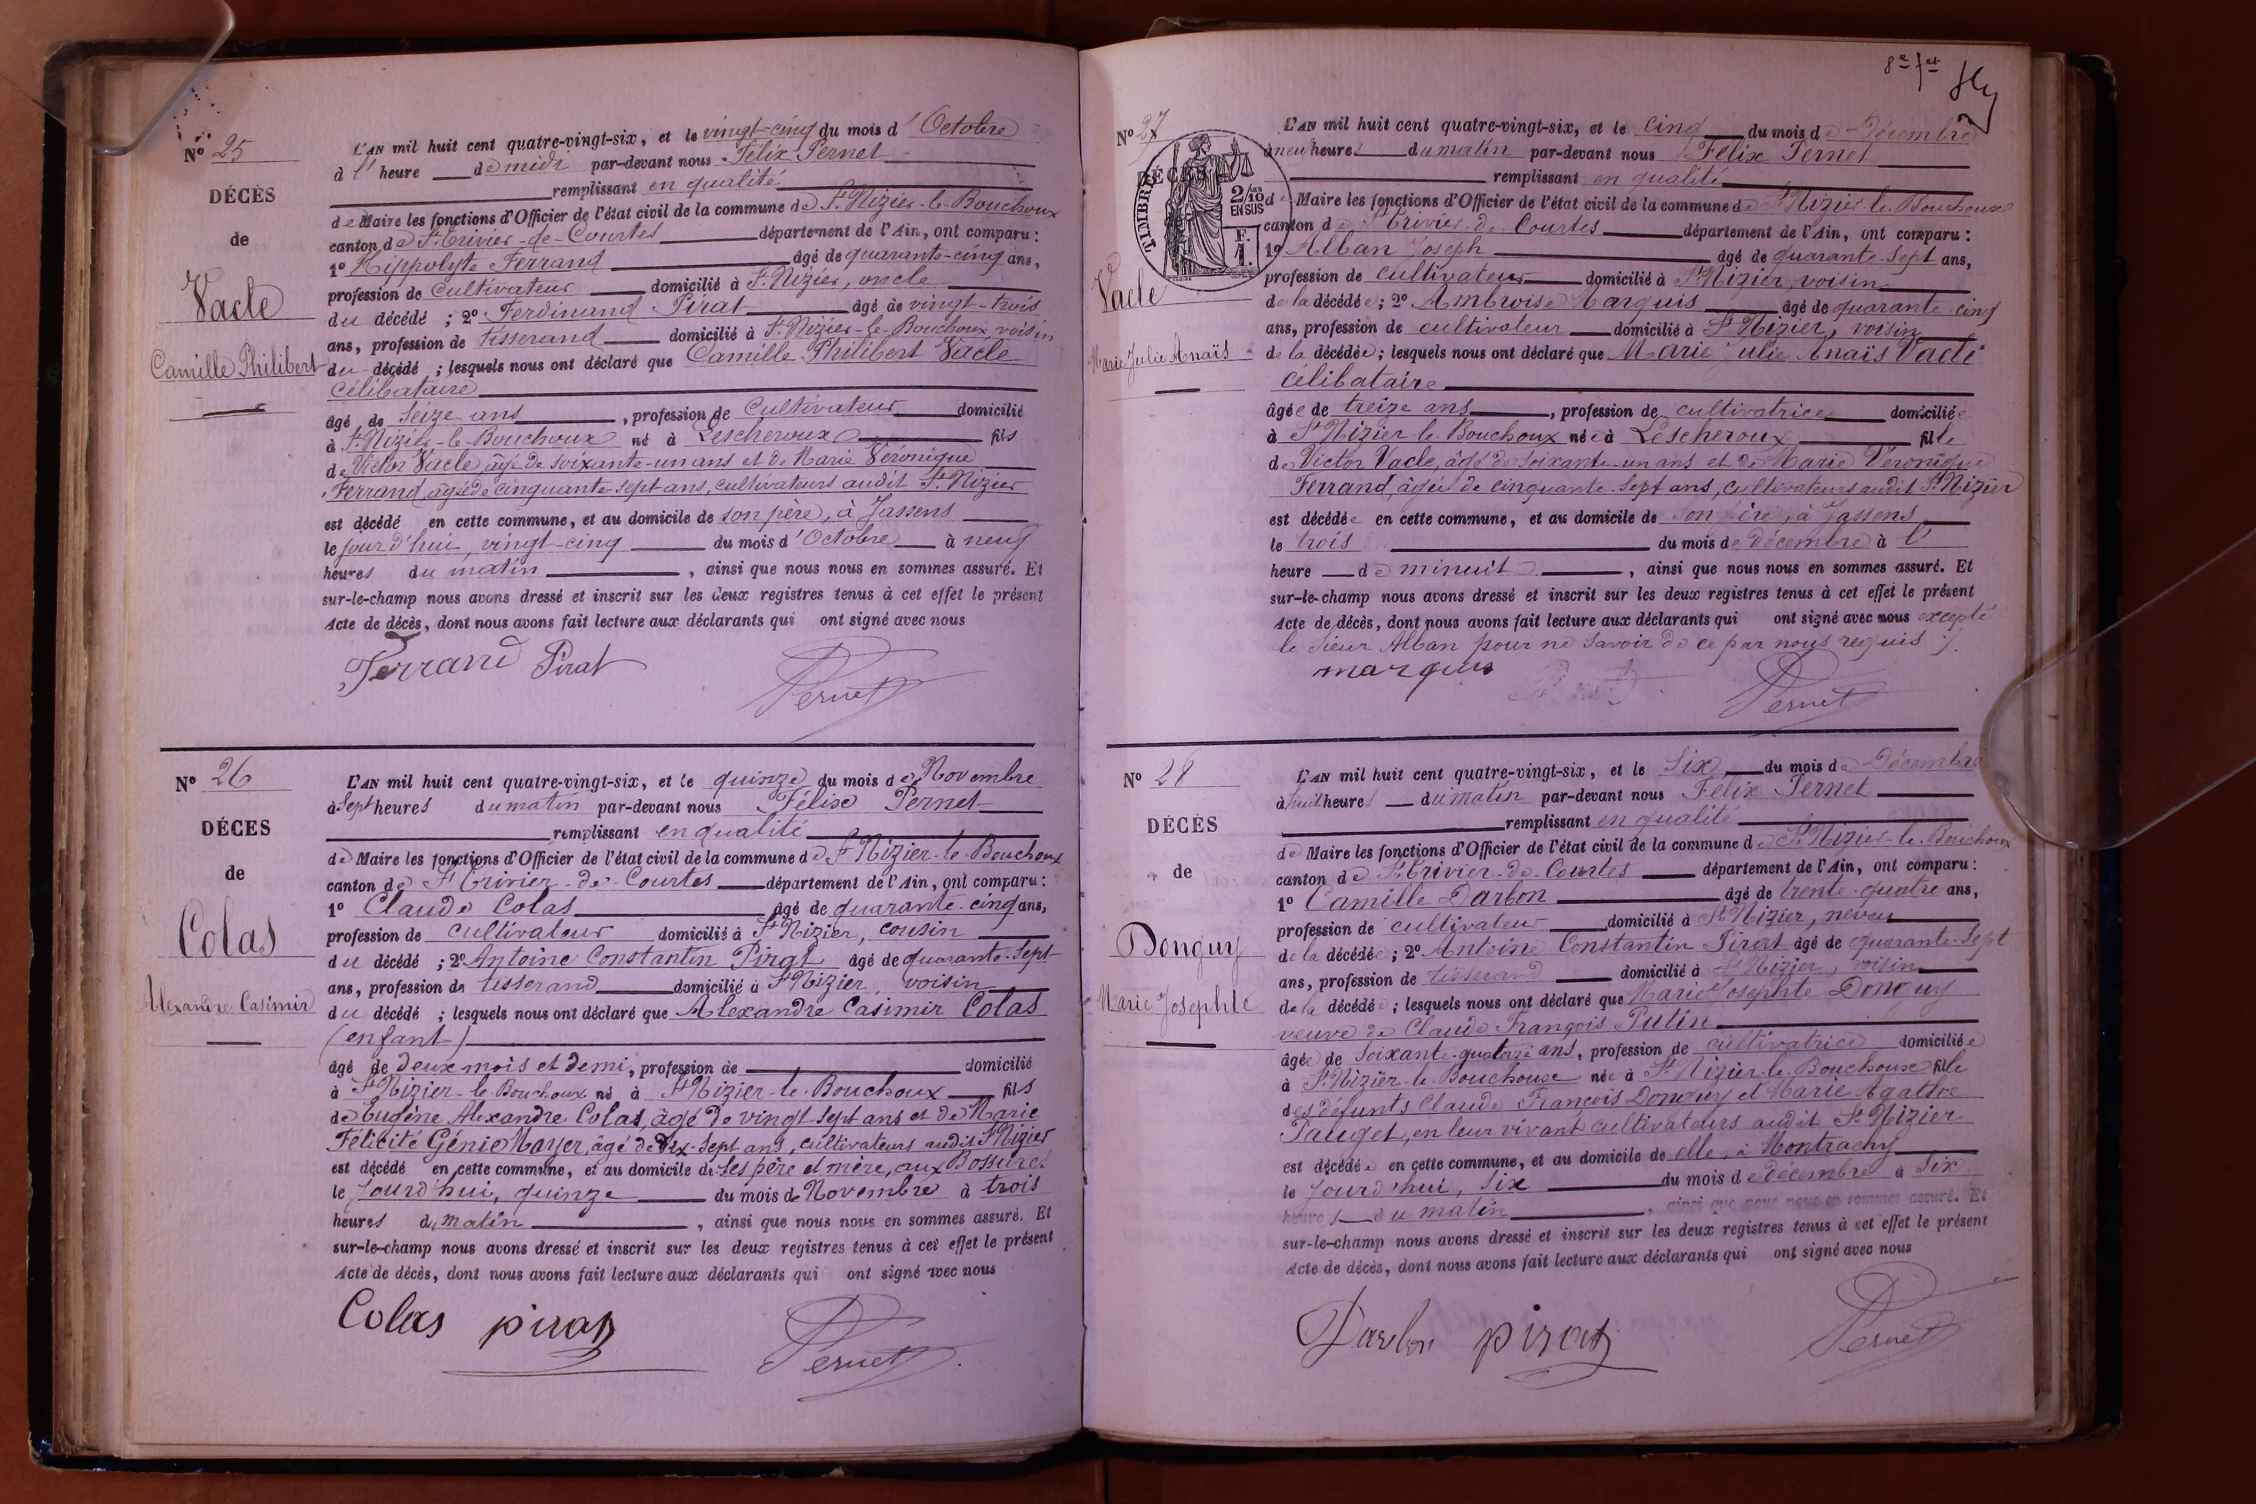 N° 25
DÉCÈS
de
Vacle
Camille Philibert
L'AN mil huit cent quatre-vingt-six, et le vingt-cinq du mois d'Octobre
à l'heure de midi par-devant nous Félix Pernet
remplissant en qualité
de Maire les fonctions d'Officier de l'état civil de la commune de St Nizier-le-Bouchoux
canton de St Trivier-de-Courtes département de l'Ain, ont comparu :
1° Hippolyte Ferrand âgé de quarante-cinq ans,
profession de Cultivateur domicilié à St Nizier, oncle
du décédé ; 2° Ferdinand Pirat âgé de vingt-trois
ans, profession de tisserand domicilié à St Nizier-le-Bouchoux voisin
du décédé ; lesquels nous ont déclaré que Camille Philibert Vacle
célibataire
âgé de seize ans, profession de Cultivateur domicilié
à St Nizier-le-Bouchoux né à Lescheroux fils
de Victor Vacle, âgé de soixante-un ans et de Marie Véronique
Ferrand, âgée de cinquante-sept ans, cultivateurs audit St Nizier
est décédé en cette commune, et au domicile de son père, à Jassens
le jourd'hui, vingt-cinq du mois d'Octobre à neuf
heures du matin, ainsi que nous nous en sommes assuré. Et
sur-le-champ nous avons dressé et inscrit sur les deux registres tenus à cet effet le présent
Acte de décès, dont nous avons fait lecture aux déclarants qui ont signé avec nous
Ferrand Pirat Pernet
N° 26
DÉCES
de
Colas
Alexandre Casimir
L'AN mil huit cent quatre-vingt-six, et le quinze du mois de Novembre
à sept heures du matin par-devant nous Félix Pernet
remplissant en qualité
de Maire les fonctions d'Officier de l'état civil de la commune de St Nizier-le-Bouchoux
canton de St Trivier-de-Courtes département de l'Ain, ont comparu :
1° Claude Colas âgé de quarante-cinq ans,
profession de cultivateur domicilié à St Nizier, cousin
du décédé ; 2° Antoine Constantin Pirat âgé de quarante-sept
ans, profession de tisserand domicilié à St Nizier, voisin
du décédé ; lesquels nous ont déclaré que Alexandre Casimir Colas
(enfant)
âgé de deux mois et demi, profession de domicilié
à St Nizier-le-Bouchoux né à St Nizier-le-Bouchoux fils
de Eugène Alexandre Colas, âgé de vingt sept ans et de Marie
Félicité Génie Mayer, âgé de dix-sept ans, cultivateurs audit St Nizier
est décédé en cette commune, et au domicile de ses père et mère, aux
le jourd'hui, quinze du mois de Novembre à trois
heures du matin, ainsi que nous nous en sommes assuré. Et
sur-le-champ nous avons dressé et inscrit sur les deux registres tenus à cet effet le présent
Acte de décès, dont nous avons fait lecture aux déclarants qui ont signé avec nous
Colas pirat Pernet
8e fet
N° 27
DÉCÈS
TIMBRE
2/10 EN SUS
F. 1.
Vacle
Marie Julie Anaïs
L'AN mil huit cent quatre-vingt-six, et le cinq du mois de Décembre
à neuf heures du matin par-devant nous Félix Pernet
remplissant en qualité
de Maire les fonctions d'Officier de l'état civil de la commune de St Nizier-le-Bouchoux
canton de St Trivier-de-Courtes département de l'Ain, ont comparu :
1° Alban Joseph âgé de quarante-sept ans,
profession de cultivateur domicilié à St Nizier, voisin
de la décédée ; 2° Ambroise Marquis âgé de quarante-cinq
ans, profession de cultivateur domicilié à St Nizier, voisin
de la décédée ; lesquels nous ont déclaré que Marie Julie Anaïs Vacle
célibataire
âgée de treize ans, profession de cultivatrice domiciliée
à St Nizier le Bouchoux née à Lescheroux fille
de Victor Vacle, âgé de soixante-un ans et de Marie Véronique
Ferrand, âgée de cinquante-sept ans, cultivateurs audit St Nizier
est décédée en cette commune, et au domicile de son père, à Jassens
le trois du mois de décembre à l'
heure de minuit, ainsi que nous nous en sommes assuré. Et
sur-le-champ nous avons dressé et inscrit sur les deux registres tenus à cet effet le présent
Acte de décès, dont nous avons fait lecture aux déclarants qui ont signé avec nous excepté
le sieur Alban pour ne savoir de ce par nous requis
marquis Pernet
N° 28
DÉCÈS
de
Donguy
Marie Josephte
L'AN mil huit cent quatre-vingt-six, et le six du mois de Décembre
à huit heures du matin par-devant nous Félix Pernet
remplissant en qualité
de Maire les fonctions d'Officier de l'état civil de la commune de St Nizier-le-Bouchoux
canton de St Trivier-de-Courtes département de l'Ain, ont comparu :
1° Camille Darbon âgé de trente-quatre ans,
profession de cultivateur domicilié à St Nizier, neveu
de la décédée ; 2° Antoine Constantin Pirat âgé de quarante-sept
ans, profession de tisserand domicilié à St Nizier, voisin
de la décédée ; lesquels nous ont déclaré que Marie Josephte Donguy
veuve de Claude François Putin
âgée de soixante-quatorze ans, profession de cultivatrice domiciliée
à St Nizier-le-Bouchoux née à St Nizier-le-Bouchoux fille
des défunts Claude François Donguy et Marie Agathe
Pauget, en leur vivant cultivateurs audit St Nizier
est décédée en cette commune, et au domicile de elle, à Montrachy
le jourd'hui, six du mois de décembre à six
heures du matin, ainsi que nous nous en sommes assuré. Et
sur-le-champ nous avons dressé et inscrit sur les deux registres tenus à cet effet le présent
Acte de décès, dont nous avons fait lecture aux déclarants qui ont signé avec nous
Darbon pirat Pernet